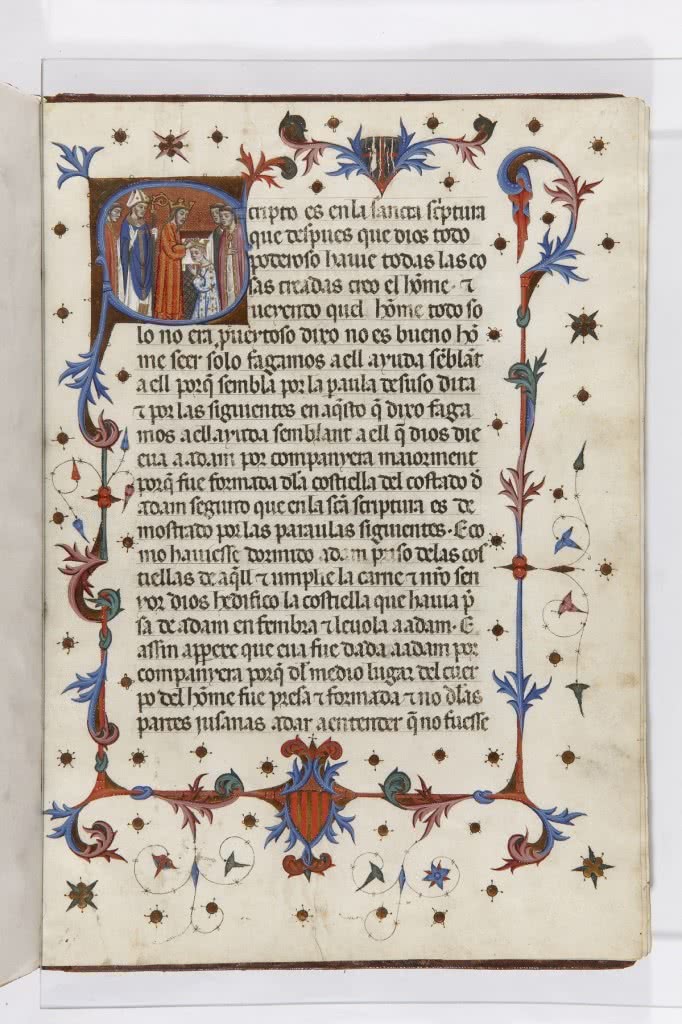 Scripto es en la sancta sc̃ptura
que despues que dios todo
poderoso hauie todas las co
sas creadas creo el hõme · ⁊
uerendo quel hõme todo so
lo no era prouertoso dixo no es bueno hõ
me seer solo fagamos a ell ayuda sẽblãt
a ell porq̃ sembla por la paula desuso dita
⁊ por las siguientes en aq̃sto q̃ dixo faga
mos a ell ayuda semblant a ell q̃ dios die
eua a adam por companyera maiorment
porq̃ fue formada dla costiella del costado d̃
adam segunto que en la sc̃a scriptura es de
mostrado por las paraulas siguientes · E co
mo hauiesse dormido adam priso de las cos
tiellas de aq̃ll ⁊ umplie la carne ⁊ nr̃o sen
yor dios hedifico la costiella que hauia p̃
sa de adam en fembra ⁊ leuola a adam · E
assin appere que eua fue dada a adam por
companyera porq̃ dl medio lugar del cuer
po del hõme fue presa ⁊ formada ⁊ no dlas
partes jusanas a dar a entender q̃ no fuesse